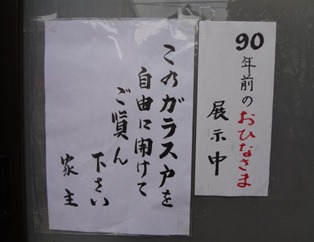 90
年前の
おひなさま
展示中
このガラス戸を
自由に開けて
ご賢ん
下さい
家主